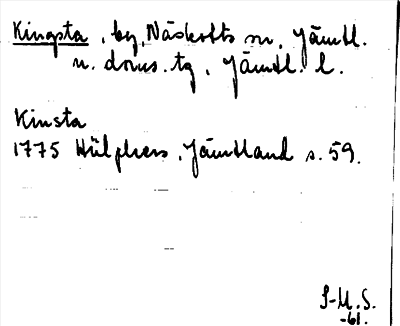 Kingsta, by, Näskotts sn, Jämtl.
n. doms. tg, Jämtl. l.
Kinsta
1775 Hülphers, Jämtland s. 59.
S-M.S.
-61.